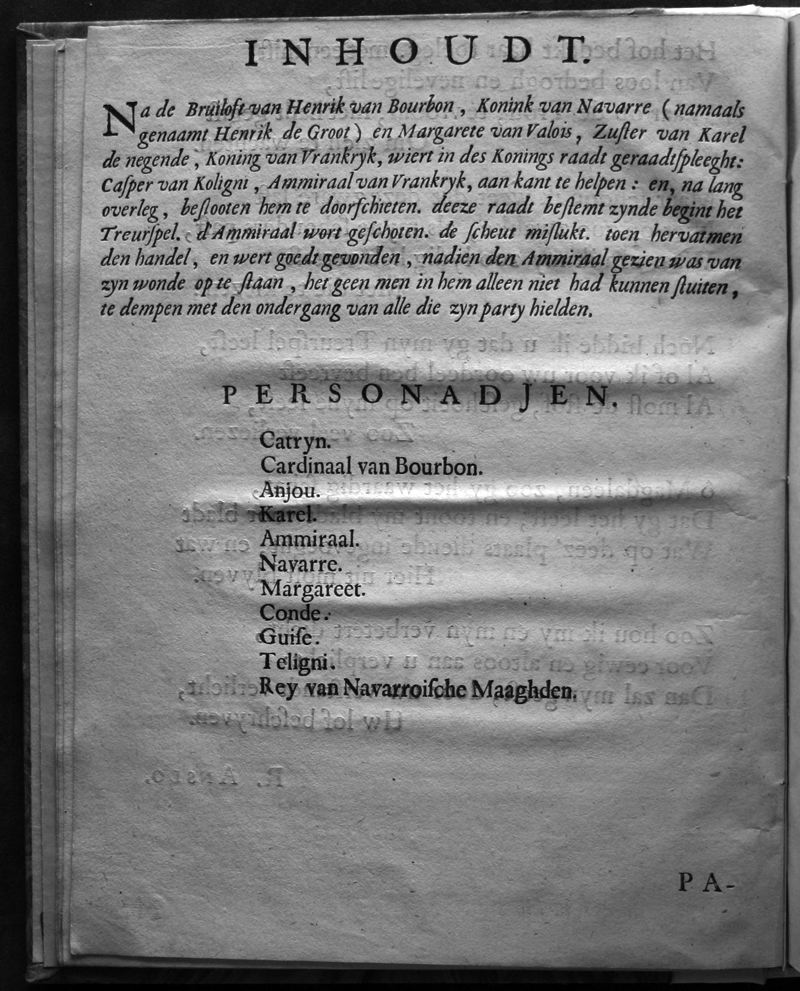 INHOUDT.
Na de Bruiloft van Henrik van Bourbon, Konink van Navarre (namaals
genaamt Henrik de Groot) en Margarete van Valois, Zuſter van Karel
de negende, Koning van Vrankryk, wiert in des Konings raadt geraadtſpleeght:
Caſper van Koligni, Ammiraal van Vrankryk, aan kant te helpen: en, na lang
overleg, beſlooten hem te doorſchieten. deeze raadt beſtemt zynde begint het
Treurſpel. d'Ammiraal wort geſchoten. de ſcheut miſlukt. toen hervatmen
den handel, en wert goedt gevonden, nadien den Ammiraal gezien was van
zyn wonde op te ſtaan, het geen men in hem alleen niet had kunnen ſluiten,
te dempen met den ondergang van alle die zyn party hielden.
PERSONADJEN.
Catryn.
Cardinaal van Bourbon.
Anjou.
Karel.
Ammiraal.
Navarre.
Margareet.
Conde.
Guiſe.
Teligni.
Rey van Navarroiſche Maaghden.
PA-